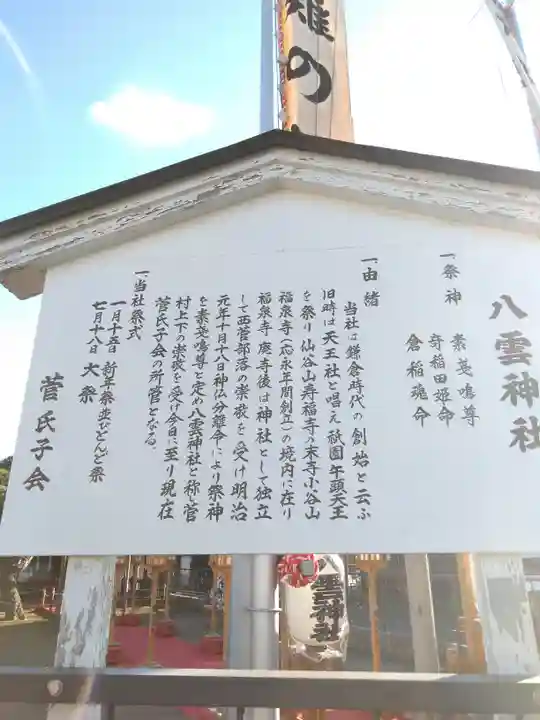 雛の
八雲神社
一祭神 素戔鳴尊
奇稲田姫命
倉稲魂命
一由緒
当社は鎌倉時代の創始と云ふ
旧時は天王社と唱え祇園午頭天王
を祭り仙谷山寿福寺の末寺小谷山
福泉寺(応永年間創立)の境内に在り
福泉寺廃寺後は神社として独立
して西菅部落の崇敬を受け明治
元年十月十八日神仏分離命により祭神
を素戔鳴尊と定め八雲神社と称し菅
村上下の崇敬を受け今日に至り現在
菅氏子会の所管となる。
一当社祭式
一月十五日 新年祭並びどんど祭
七月十八日 大祭
菅氏子会
八雲神社